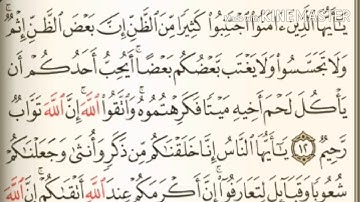 Made with KINEMASTER
يَٰٓأَيُّهَا ٱلَّذِينَ ءَامَنُوا۟ ٱجْتَنِبُوا۟ كَثِيرًا مِّنَ ٱلظَّنِّ إِنَّ بَعْضَ ٱلظَّنِّ إِثْمٌ ۖ
وَلَا تَجَسَّسُوا۟ وَلَا يَغْتَب بَّعْضُكُم بَعْضًا ۚ أَيُحِبُّ أَحَدُكُمْ أَن
يَأْكُلَ لَحْمَ أَخِيهِ مَيْتًا فَكَرِهْتُمُوهُ ۚ وَٱتَّقُوا۟ ٱللَّهَ ۚ إِنَّ ٱللَّهَ تَوَّابٌ
رَّحِيمٌ ١٢ يَٰٓأَيُّهَا ٱلنَّاسُ إِنَّا خَلَقْنَٰكُم مِّن ذَكَرٍ وَأُنثَىٰ وَجَعَلْنَٰكُمْ
شُعُوبًا وَقَبَآئِلَ لِتَعَارَفُوٓا۟ ۚ إِنَّ أَكْرَمَكُمْ عِندَ ٱللَّهِ أَتْقَىٰكُمْ ۚ إِنَّ ٱللَّهَ